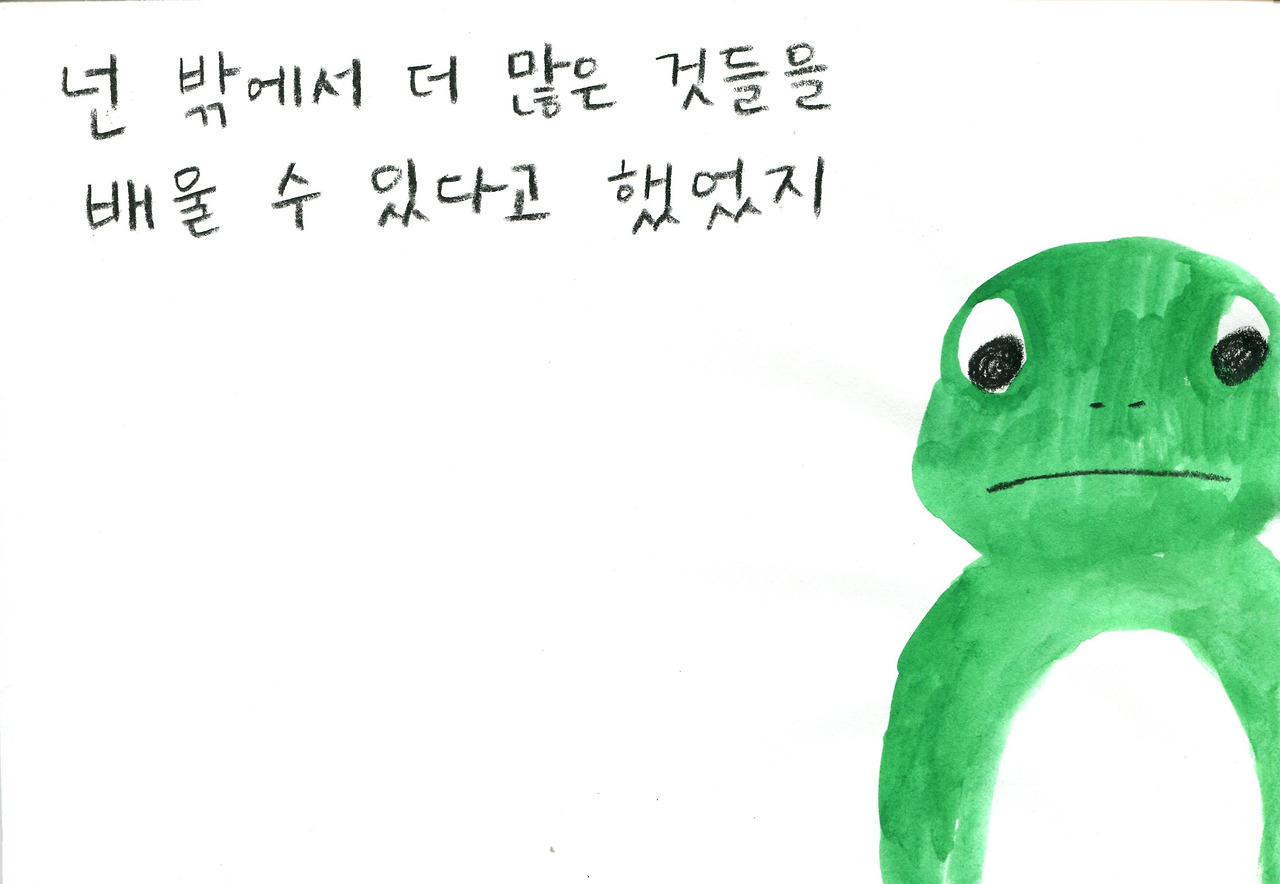 넌 밖에서 더 많은 것들을
배울 수 있다고 했었지